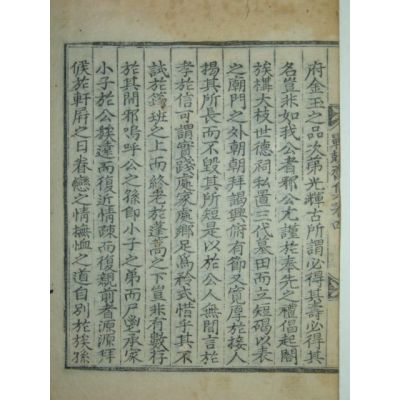 府金玉之品次第光輝古所謂必得其壽必得其
名豈非如我公者耶公尤謹於奉先之禮倡起闔
族構大枝世德祠私置三代墓田而立短碣以表
之廟門之外朝朝拜謁興俯有節又寬厚於接人
揚其所長而不毀其所短是以於公人無間言於
孝於信可謂實踐處家處鄉足爲矜式惜乎其不
試於鵷班之上而終老於蓬蒿之下豈非有數存
於其間耶嗚呼公之孫卽小子之弟而承家
小子於公族遠而復近情疎而復親前者源源拜
候於軒屛之日眷戀之情撫恤之道自別於族孫